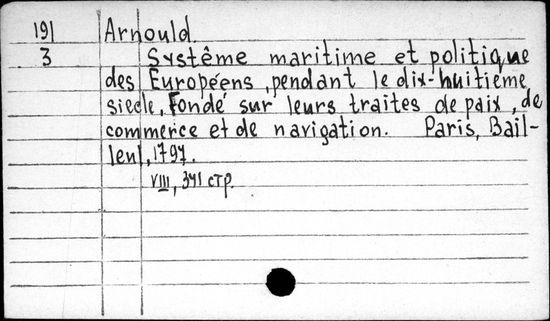 191 Arnould.
3 Système maritime et politique
des Européens, pendant le dix-huitième
siecle, Fondé sur leurs traites de paix, de
commerce et de navigation. Paris, Bail-
leul, 1797.
VIII, 341 стр.